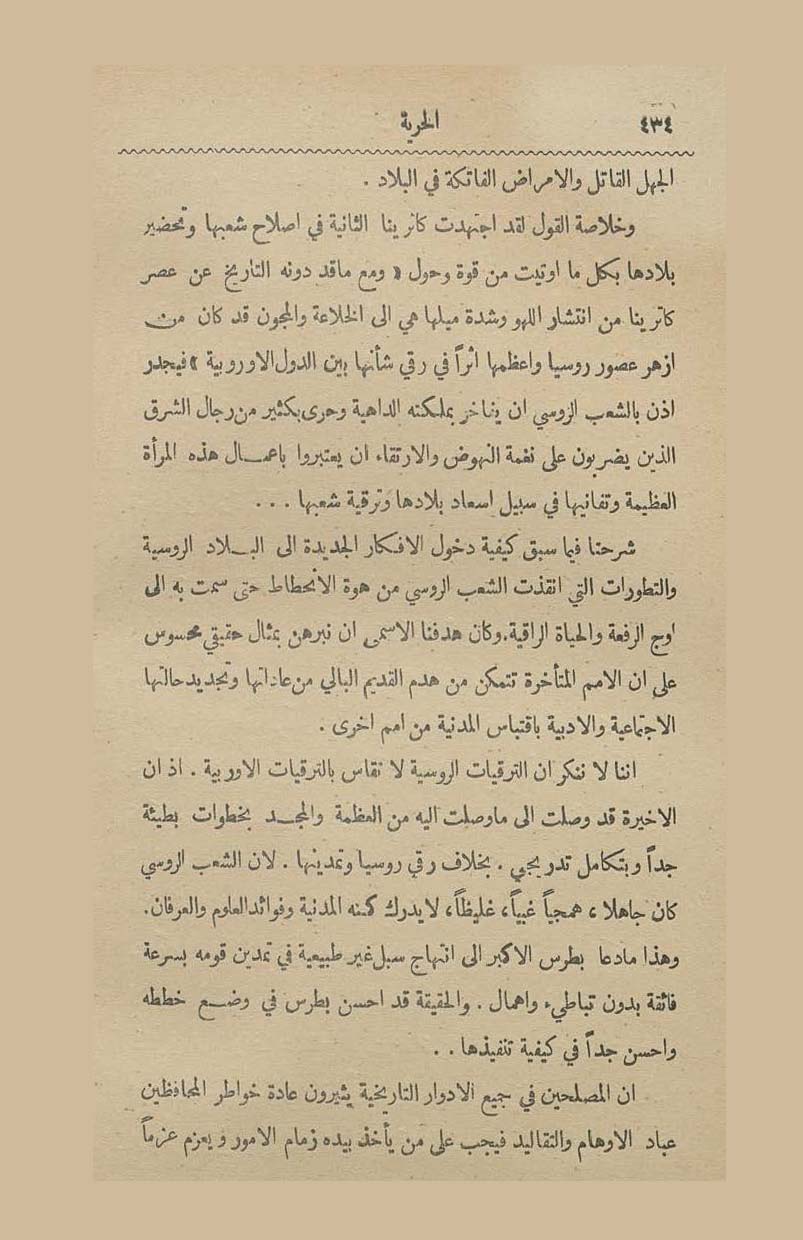 ٤٣٤ الحرية
الجهل القاتل والامراض الفاتكة في البلاد .
وخلاصة القول لقد اجتهدت كاترينا الثانية في اصلاح شعبها وتحضير
بلادها بكل ما اوتيت من قوة وحول « ومع ماقد دونه التاريخ عن عصر
كاترينا من انتشار اللهو وشدة ميلها هي الى الخلاعة والمجون قد كان من
ازهر عصور روسيا واعظمها اثراً في رقي شأنها بين الدول الاوروبية » فيجدر
اذن بالشعب الروسي ان يفاخر بملكته الداهية وحرى بكثير من رجال الشرق
الذين يضربون على نغمة النهوض والارتقاء ان يعتبروا باعمـال هذه المرأة
العظيمة وتفانيها في سبيل اسعاد بلادها وترقية شعبها . . .
شرحنا فيما سبق كيفية دخول الافكار الجديدة الى البـلاد الروسية
والتطورات التي انقذت الشعب الروسي من هوة الانحطاط حتى سمت به الى
اوج الرفعة والحياة الراقية. وكان هدفنا الاسمى ان نبرهن بمثال حقيقي محسوس
على ان الامم المتأخرة تتمكن من هدم القديم البالي من عاداتها وتجديد حالتها
الاجتماعية والادبية باقتباس المدنية من امم اخرى .
اننا لا ننكر ان الترقيات الروسية لا تقاس بالترقيات الاوربية . اذ ان
الاخيرة قد وصلت الى ماوصلت اليه من العظمة والمجـد بخطوات بطيئة
جداً وبتكامل تدريجي . بخلاف رقي روسيا وتمدينها . لان الشعب الروسي
كان جاهلا ، همجياً غبياً ، غليظاً ، لايدرك كنه المدنية وفوائد العلوم والعرفان.
وهذا مادعا بطرس الاكبر الى انتهاج سبل غير طبيعية في تمدين قومه بسرعة
فائقة بدون تباطيء واهمال . والحقيقة قد احسن بطرس في وضـع خططه
واحسن جداً في كيفية تنفيذها . .
ان المصلحين في جميع الادوار التاريخية يثيرون عادة خواطر المحافظين
عباد الاوهام والتقاليد فيجب على من يأخذ بيده زمام الامور ويعزم عزماً